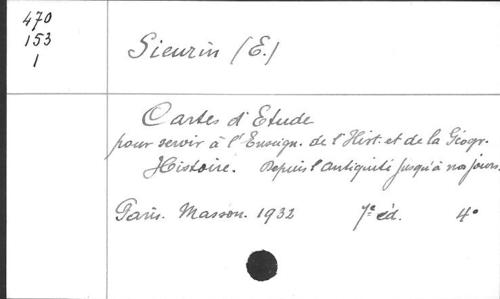 470
153
1
Sieurin (E.)
Cartes d'Etude
pour servir à l'Enseign. de l'Hist. et de la Géogr.
Histoire. Depuis l'antiquité jusqu'à nos jours.
Paris. Masson. 1932 7e éd. 4°